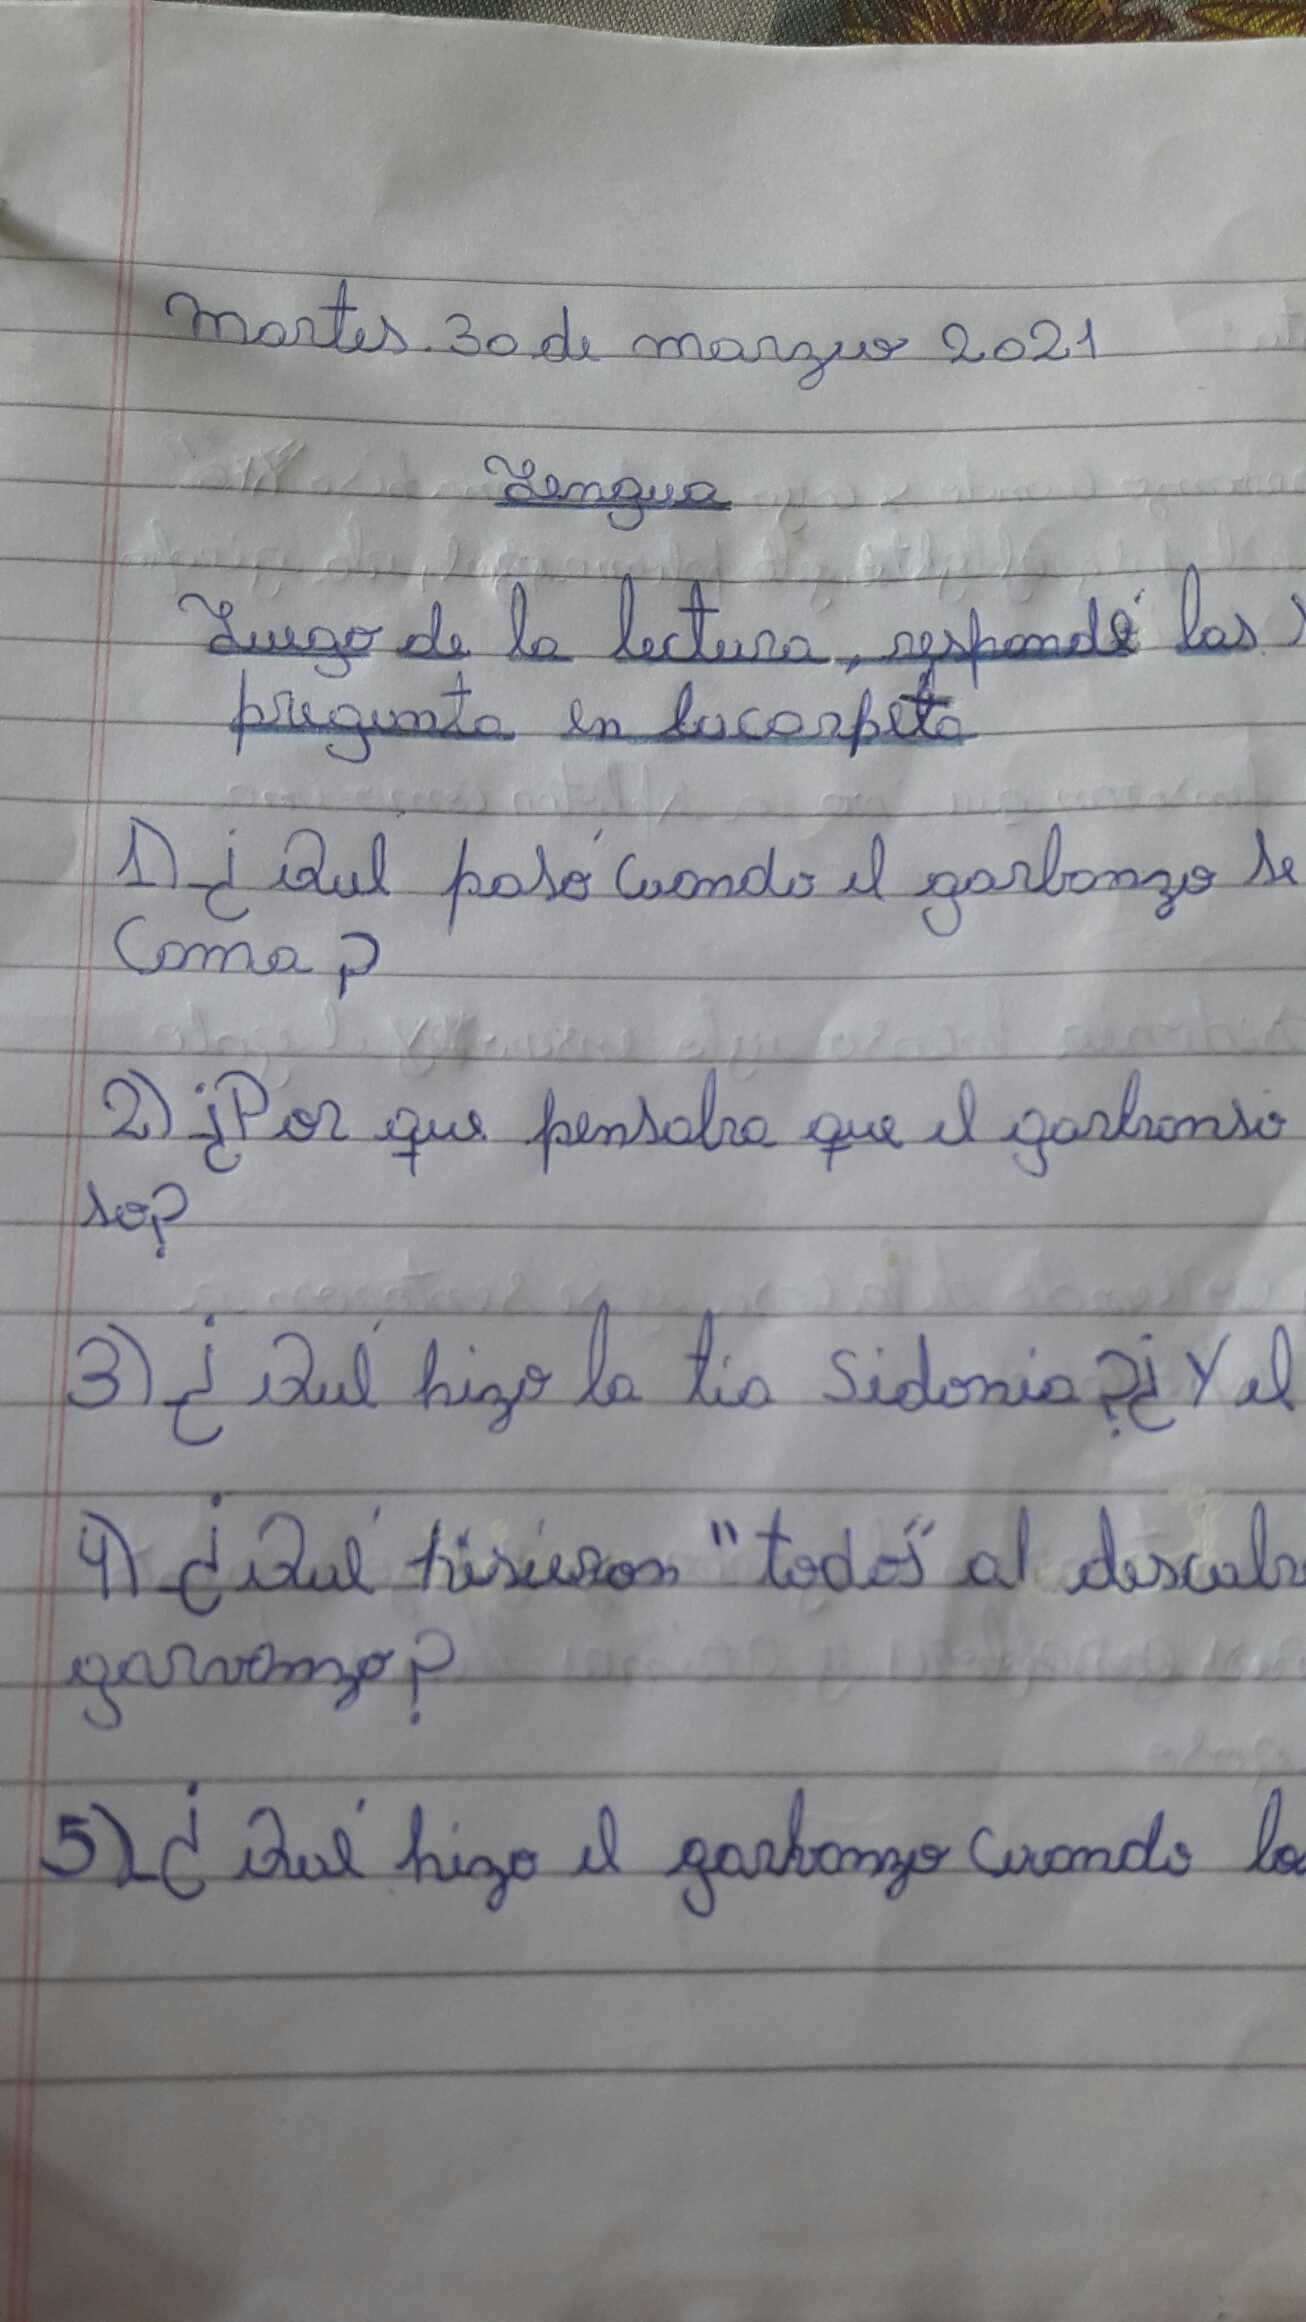 Martes 30 de marzo 2021
Lengua
Luego de la lectura, respondé las
pregunta en la carpeta
1) ¿Qué pasó cuando el garbanzo se
Coma?
2) ¿Por que pensaba que el garbonso
so?
3) ¿Qué hizo la tia Sidonia? ¿Y el
4) ¿Qué hisieron "todos" al descubr
garvanzo?
5) ¿Qué hizo el garbanzo cuando la